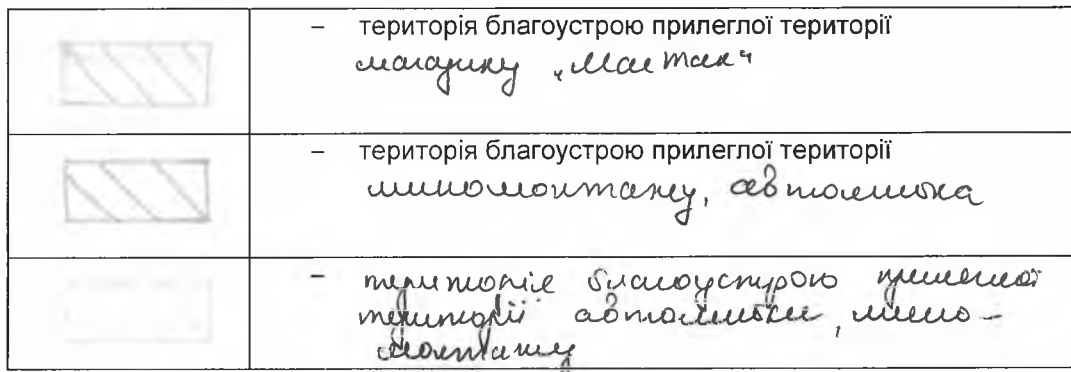 – територія благоустрою прилеглої території
магазину „Мастак“
– територія благоустрою прилеглої території
шиномонтажу, автомийка
– територія благоустрою прилеглої
території автомийки, шино-
монтажу